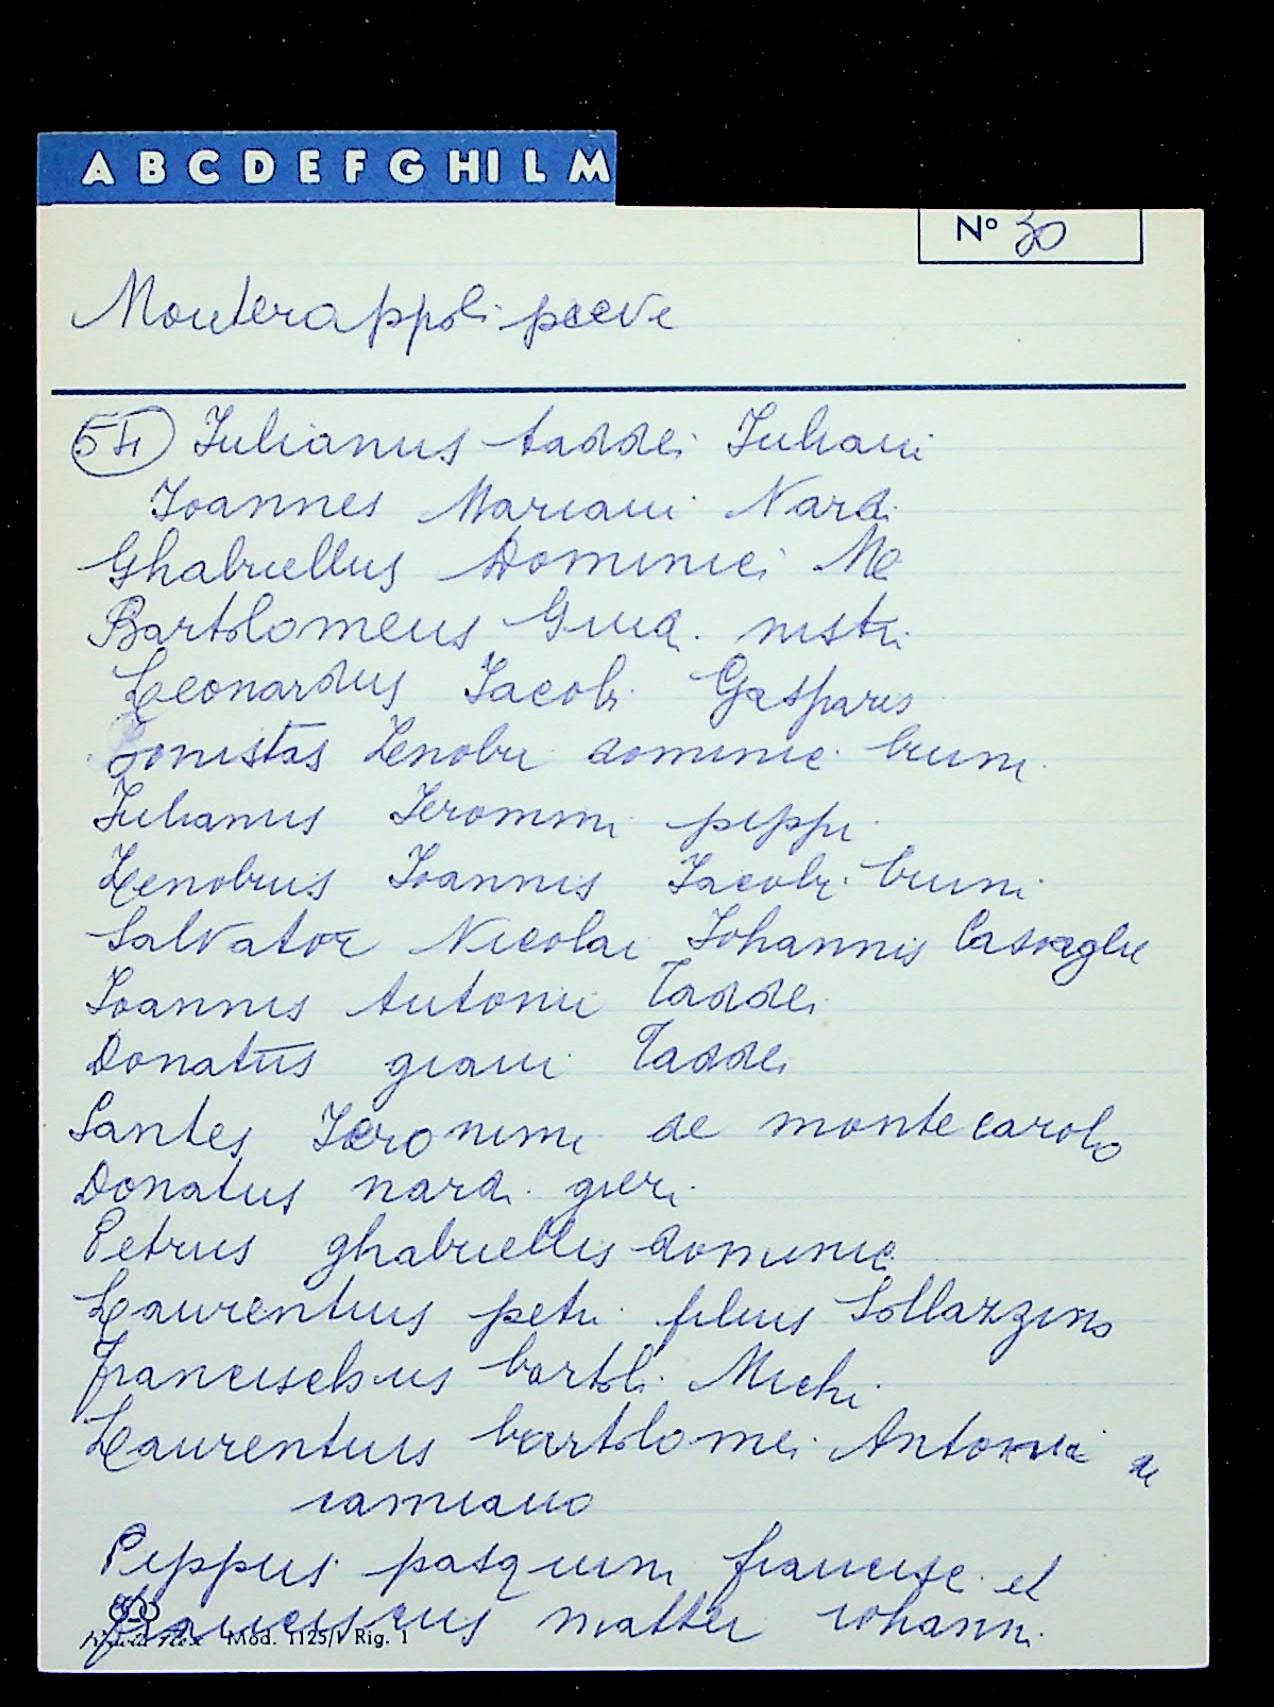 A B C D E F G HI L M
Nº 30
Monterappoli pieve
54 Iulianus taddei Iuliani
Ioannes Mariani Nardi
Ghabriellus Dominici Me
Bartolomeus Guid. nistri
Leonardus Iacobi Gasparis
Bonistas Zenobii dominici bruni
Iulianus Ieronimi pippi
Zenobius Ioannis Iacobi bruni
Salvator Nicolai Johannis Casvaglie
Ioannis Antonii Taddei
Donatus giani Taddei
Santes Ieronimi de monte carolo
Donatus nardi gieri
Petrus ghabriellis dominici
Laurentius petri filius Sollazzino
Francischus bartoli Michi
Laurentius bartolomei Antonii de
camiano
Pippus pasquini francisc. et
Franciscus mattei iohanni
Mod. 1125/1 Rig. 1